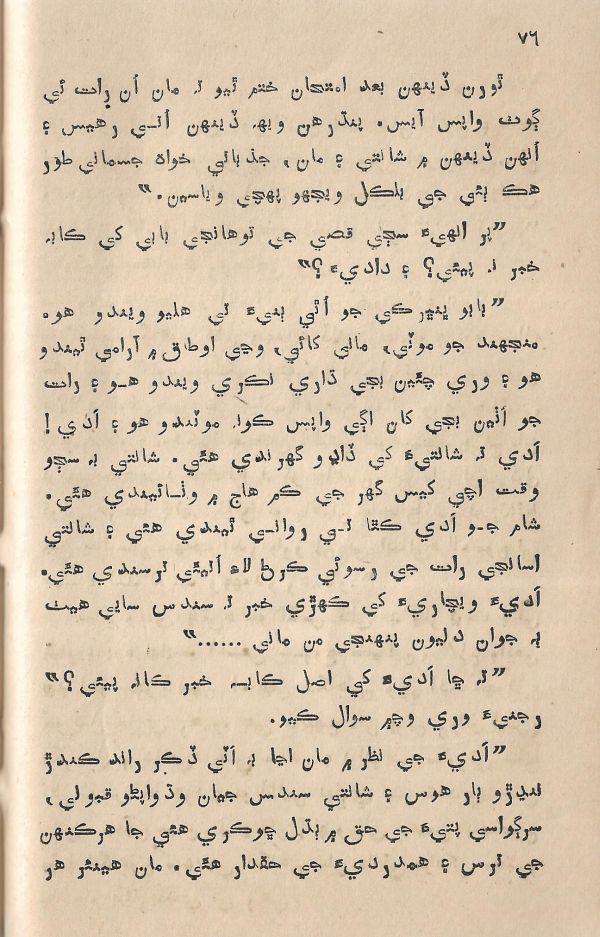 ٧٦
ٿورن ڏينهن بعد امتحان ختم ٿيو تہ مان اُن رات ئي
ڳوٺ واپس آيس. پندرهن ويهہ ڏينهن اُتي رهيس ۽
اُنهن ڏينهن ۾ شانتي ۽ مان، جذباتي خواه جسماني طور
هڪ ٻئي جي بلڪل ويجهو پهچي وياسين.”
”پر انهيءَ سڄي قصي جي توهانجي بابي کي ڪابہ
خبر نہ پيئي؟ ۽ داديءَ؟”
”بابو پنهرڪي جو اُٿي ٻنيءَ تي هليو ويندو هو.
منجهند جو موٽي، ماني کائي، وڃي اوطاق ۾ آرامي ٿيندو
هو ۽ وري چئين بجي ڌاري نڪري ويندو هو ۽ رات
جو اَٺين بجي کان اڳي واپس ڪونہ موٽندو هو ۽ اَدي!
اَدي تہ شانتيءَ کي ڏاڍو گهرندي هئي. شانتي بہ سڄو
وقت اچي کيس گهر جي ڪم ڪاج ۾ وٺائيندي هئي.
شام جو اَدي ڪٿا تي رواني ٿيندي هئي ۽ شانتي
اسانجي رات جي رسوئي ڪرڻ لاءِ اُتيئي ترسندي هئي.
اَديءَ ويچاريءَ کي ڪهڙي خبر تہ سندس سايي هيٺ
ٻہ جوان دليون پنهنجي من ماني ......”
”تہ ڇا اَديءَ کي اصل ڪابہ خبر ڪانہ پيئي؟”
رجنيءَ وري وچ۾ سوال ڪيو.
”اَديءَ جي نظر ۾ مان اڃا بہ اَٽي ڏڪر راند ڪندڙ
ننڍڙو ٻار هوس ۽ شانتي سندس جهان وڌواپڻو قبولي،
سرڳواسي پتيءَ جي حق ۾ ٻڌل ڇوڪري هئي جا هرڪنهن
جي ترس ۽ همدرديءَ جي حقدار هئي. مان هينئر هر